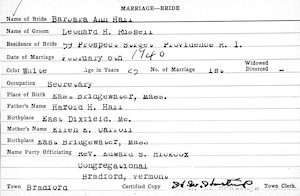 MARRIAGE—BRIDE
Name of Bride Barbara Ann Hall
Name of Groom Leonard H. Russell
Residence of Bride 59 Prospect Street Providence R. I.
Date of Marriage February 6th 1946
Color White Age in Years No. of Marriage 1st Widowed Divorced -
Occupation Secretary
Place of Birth East Bridgewater, Mass.
Father's Name Harold H. Hall
Birthplace East Dixfield, Me.
Mother's Name Ellen E. Carroll
Birthplace East Bridgewater, Mass.
Name Party Officiating Rev. Edward S. Hickcox
Congregational
Bradford, Vermont
Town Bradford Certified Copy Town Clerk